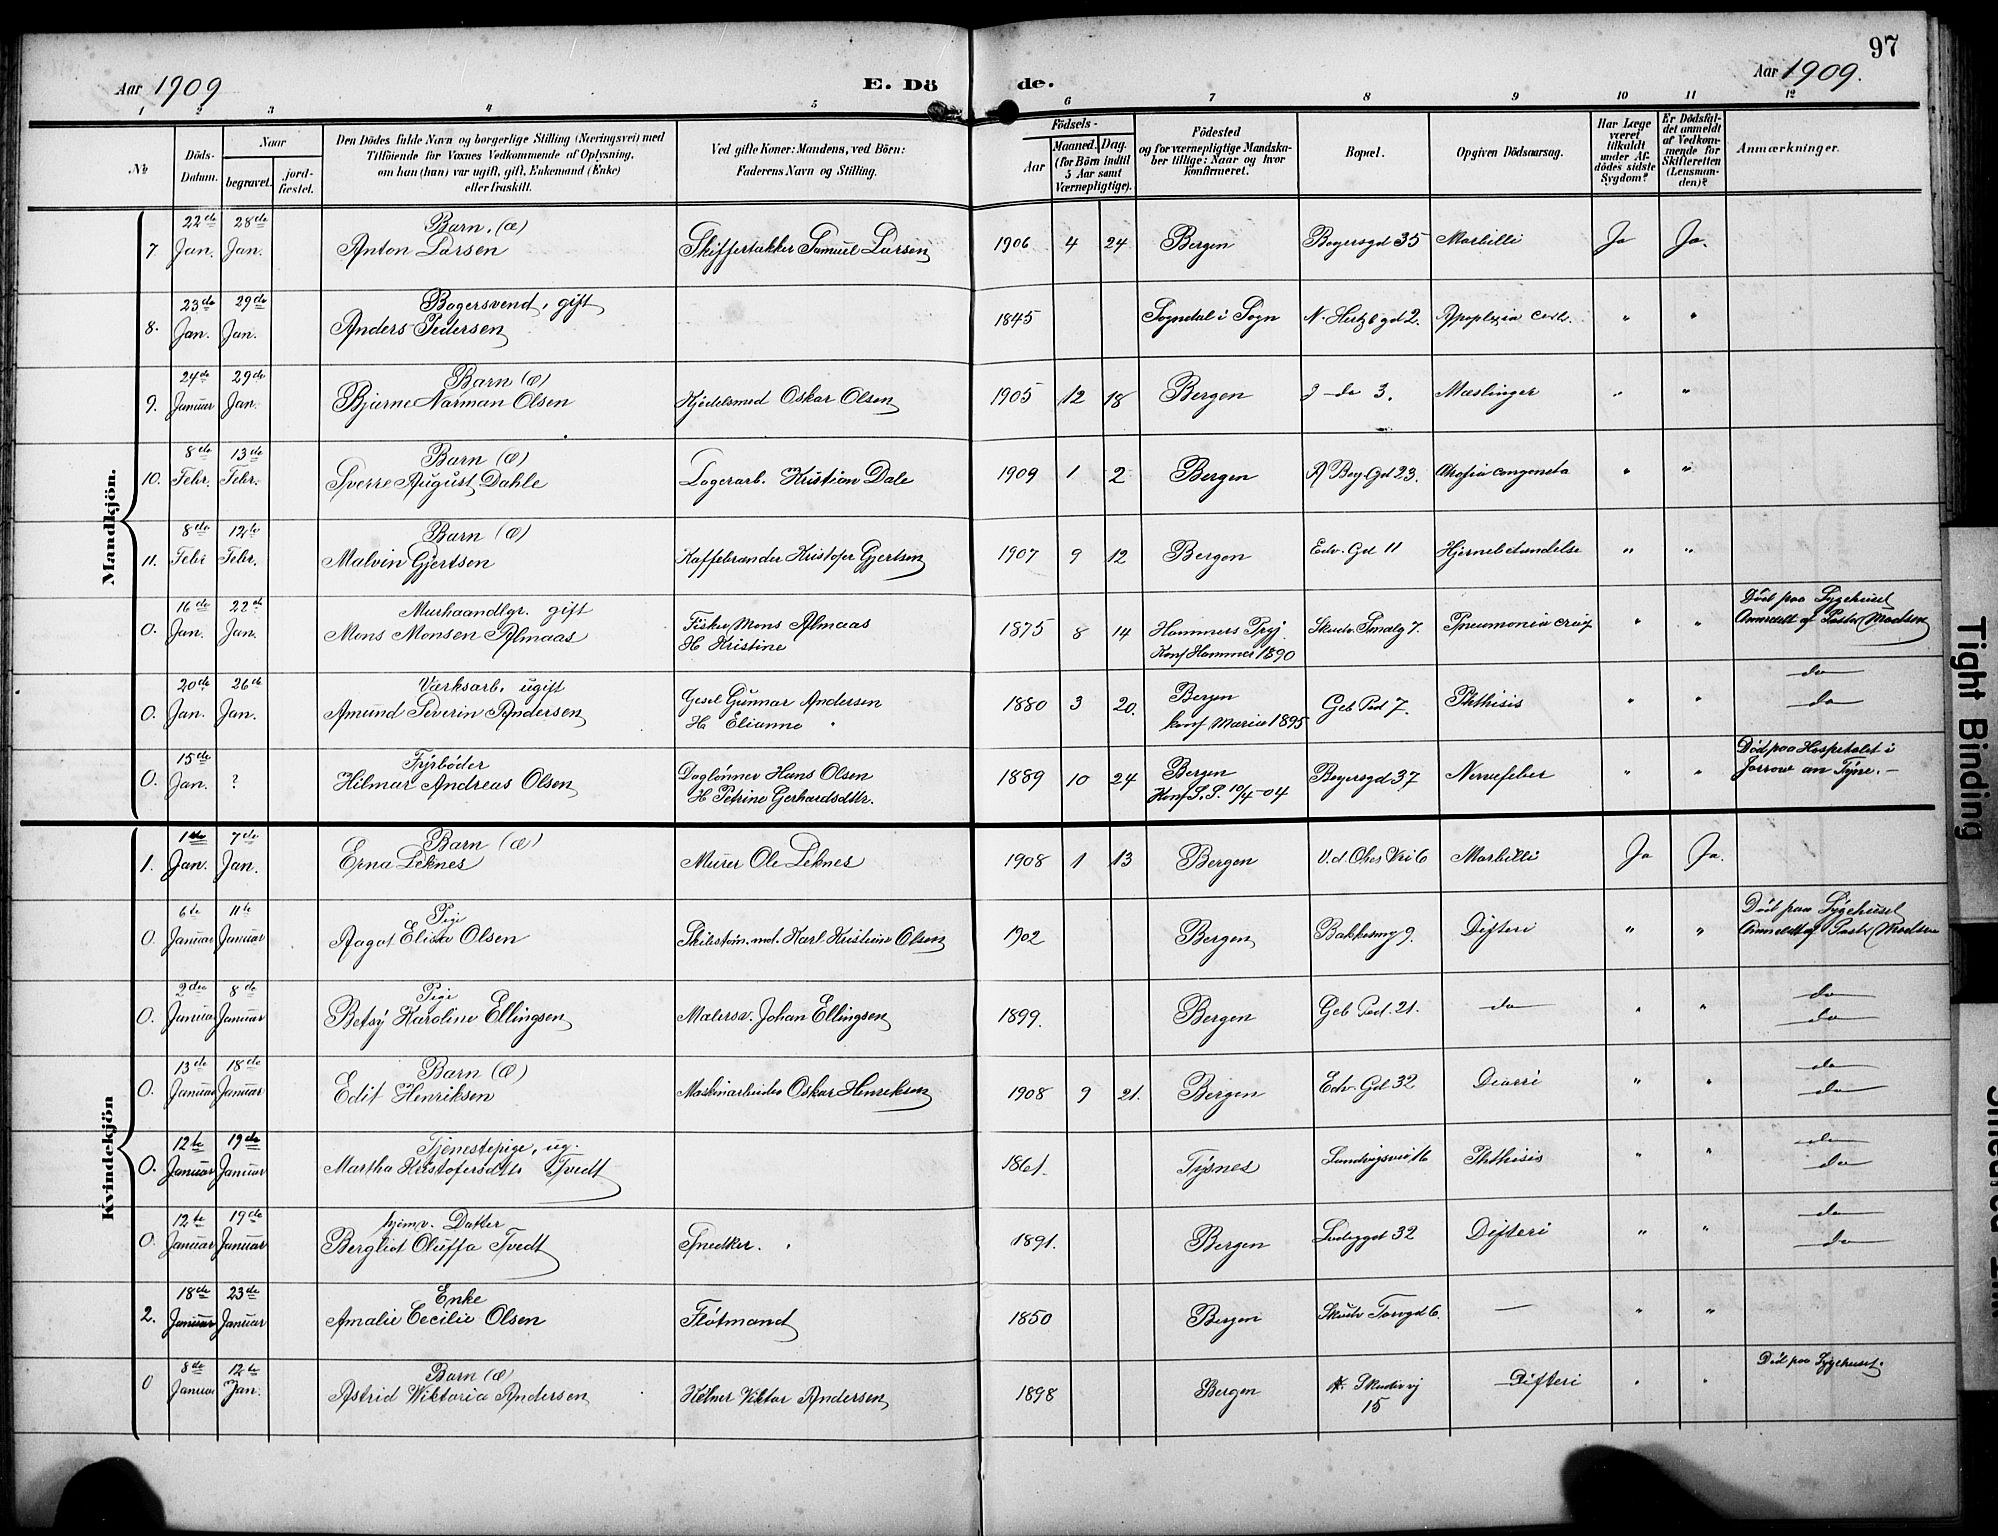 97
Aar 1909
E. Dö
de.
Aar 1909.
1 2 3 4 5 6 7 8 9 10 11 12
No
Döds-
Datum.
Naar
begravet.
jord-
fæstet.
Den Dödes fulde Navn og borgerlige Stilling (Næringsvei) med
Tilföiende for Voxnes Vedkommende af Oplysning,
om han (hun) var ugift, gift, Enkemand (Enke)
eller fraskilt.
Ved gifte Koner: Mandens, ved Börn:
Faderens Navn og Stilling.
Födsels-
Aar
Maaned.
Dag.
(for Börn indtil
5 Aar samt
Værnepligtige).
Födested
og for værnepligtige Mandska-
ber tillige: Naar og hvor
konfirmeret.
Bopæl.
Opgiven Dödsaarsag.
Har Læge
været
tilkaldt
under Af-
dödes sidste
Sygdom?
Er Dödsfal-
det anmeldt
af Vedkom-
mende for
Skifteretten
(Lensman-
den)?
Anmærkninger.
Mandkjön.
22de 28de Barn, (æ)
7. Jan. Jan. Anton Larsen Skiffertækker Samuel Larsen 1906 4 24 Bergen Bøyersgd 35 Morbilli Ja Ja.
23de 29de Bogersvend, gift
8. Jan. Jan. Anders Pedersen 1845 Sogndal i Sogn N. Hertzbgd 2. Apoplexia cerb. " "
24de 29de Barn (æ)
9. Januar Jan. Bjarne Norman Olsen Kjedelsmed Oskar Olsen 1905 12 18 Bergen do 3. Mæslinger " "
8de 13de Barn (æ)
10. Febr. Febr. Sverre August Dahle Lagerarb. Kristian Dale 1909 1 2 Bergen Bøy. Gd 23. Atrofia congenita " "
8de 12te Barn (æ)
11. Febr Febr. Malvin Gjertsen Kaffebrænder Kristofer Gjertsen 1907 9 12 Bergen Edv. Gd 11 Hjernebetændelse " "
16de 22de Murhaandlgr. gift
0. Jan. Jan. Mons Monsen Almaas Fisker Mons Almaas 1875 8 14 Hammers Prgj Skudv. Smalg 7. Pneumonia croup " " Død paa Sygehuset
H Kristine Konf Hammer 1890 Anmeldt af Pastor Madsen
20de 26de Værksarb. ugift
0. Jan. Jan. Amund Severin Andersen Gesel Gunnar Andersen 1880 3 20. Bergen Geb Pad 7. Phthisis " " do
H Elianne " konf Marie 1895 do
15de Fyrbøder
0. Jan. ? Hilmar Andreas Olsen Daglønner Hans Olsen 1889 10 24 Bergen Bøyersgd 37 Nervefeber " " Død paa Hospitalet i
H Petrine Gerhardsdttr. Konf S.P. 10/4-04 Jarrow on Tyne. -
Kvindekjön
1de 7de Barn (æ)
1. Jan. Jan. Erna Leknes Murer Ole Leknes 1908 1 13 Bergen Morbilli Ja Ja.
6te 11te Pige
0. Januar Januar Aagot Elisa Olsen Karl Kristian Olsen 1902 Bergen Bakkesmg 9. Difteri " " Død paa Sygehuset
Anmeldt af Pastor Madsen
2den 8de Pige
0. Januar Januar Betsy Karoline Ellingsen Malersv. Johan Ellingsen 1899. Bergen Geb Pad. 21. do " " do
do
13de 18de Barn (æ)
0. Januar Januar Edit Henriksen Maskinarbeider Oskar Henriksen 1908 9 21. Bergen Edv. Gd 32 Diarri " " do
do
12te 19de Tjenestepige, ug.
0. Januar Januar Martha Kristofersdttr Tvedt 1861. Tysnes 16 Phthisis " " do
do
12te 19de hjemv. Datter
0. Januar Januar Bergliot Oluffa Tvedt Snedker. " 1891. Bergen 32 Difteri " " do
do
18de 23de Enke
2. Januar Januar Amalie Cecilie Olsen Fløtmand 1850 Bergen Skudv Torvgd 6. — " "
8de 12te Barn (æ)
0 Januar Jan. Astrid Wiktoria Andersen Viktor Andersen 1898 Bergen Skudevvj Difteri " " Død paa Sygehuset.
15
Tight Binding